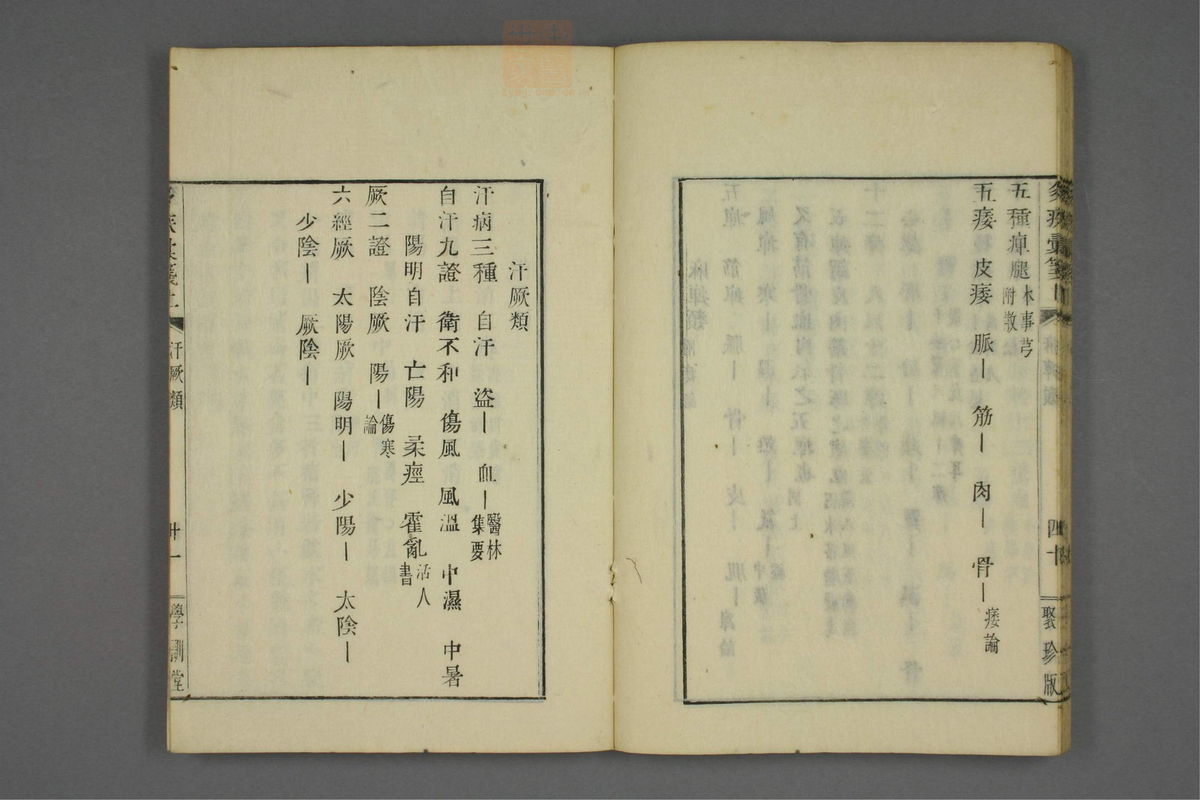 五種痺腿 本事芎附散
五痿 皮痿 脈｜ 筋｜ 肉｜ 骨｜ 痿論
四十
聚珍版
汗厥類
汗病三種 自汗 盜｜ 血｜ 醫林集要
自汗九證 衛不和 傷風 風溫 中濕 中暑
陽明自汗 亡陽 柔痙 霍亂 活人書
厥二證 陰厥 陽｜ 傷寒論
六經厥 太陽厥 陽明｜ 少陽｜ 太陰｜
少陰｜ 厥陰｜
汗厥類
廿一
學訓堂